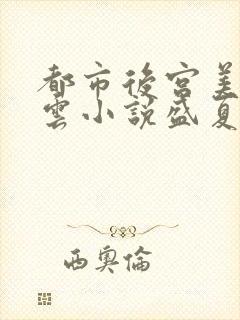 都市後宮美
雲小説盛夏
西奧倫